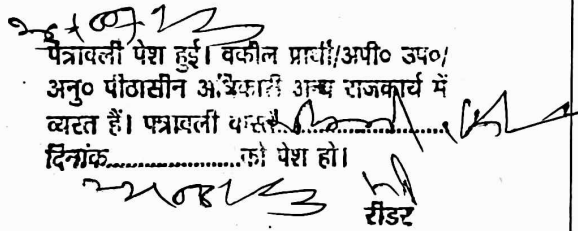 पत्रावली पेश हुई। वकील प्रार्थी/अपी० उप०/
अनु० पीठासीन अधिकारी अन्य राजकार्य में
व्यस्त हैं। पत्रावली वास्ते....................
दिनांक....................को पेश हो।
रीडर